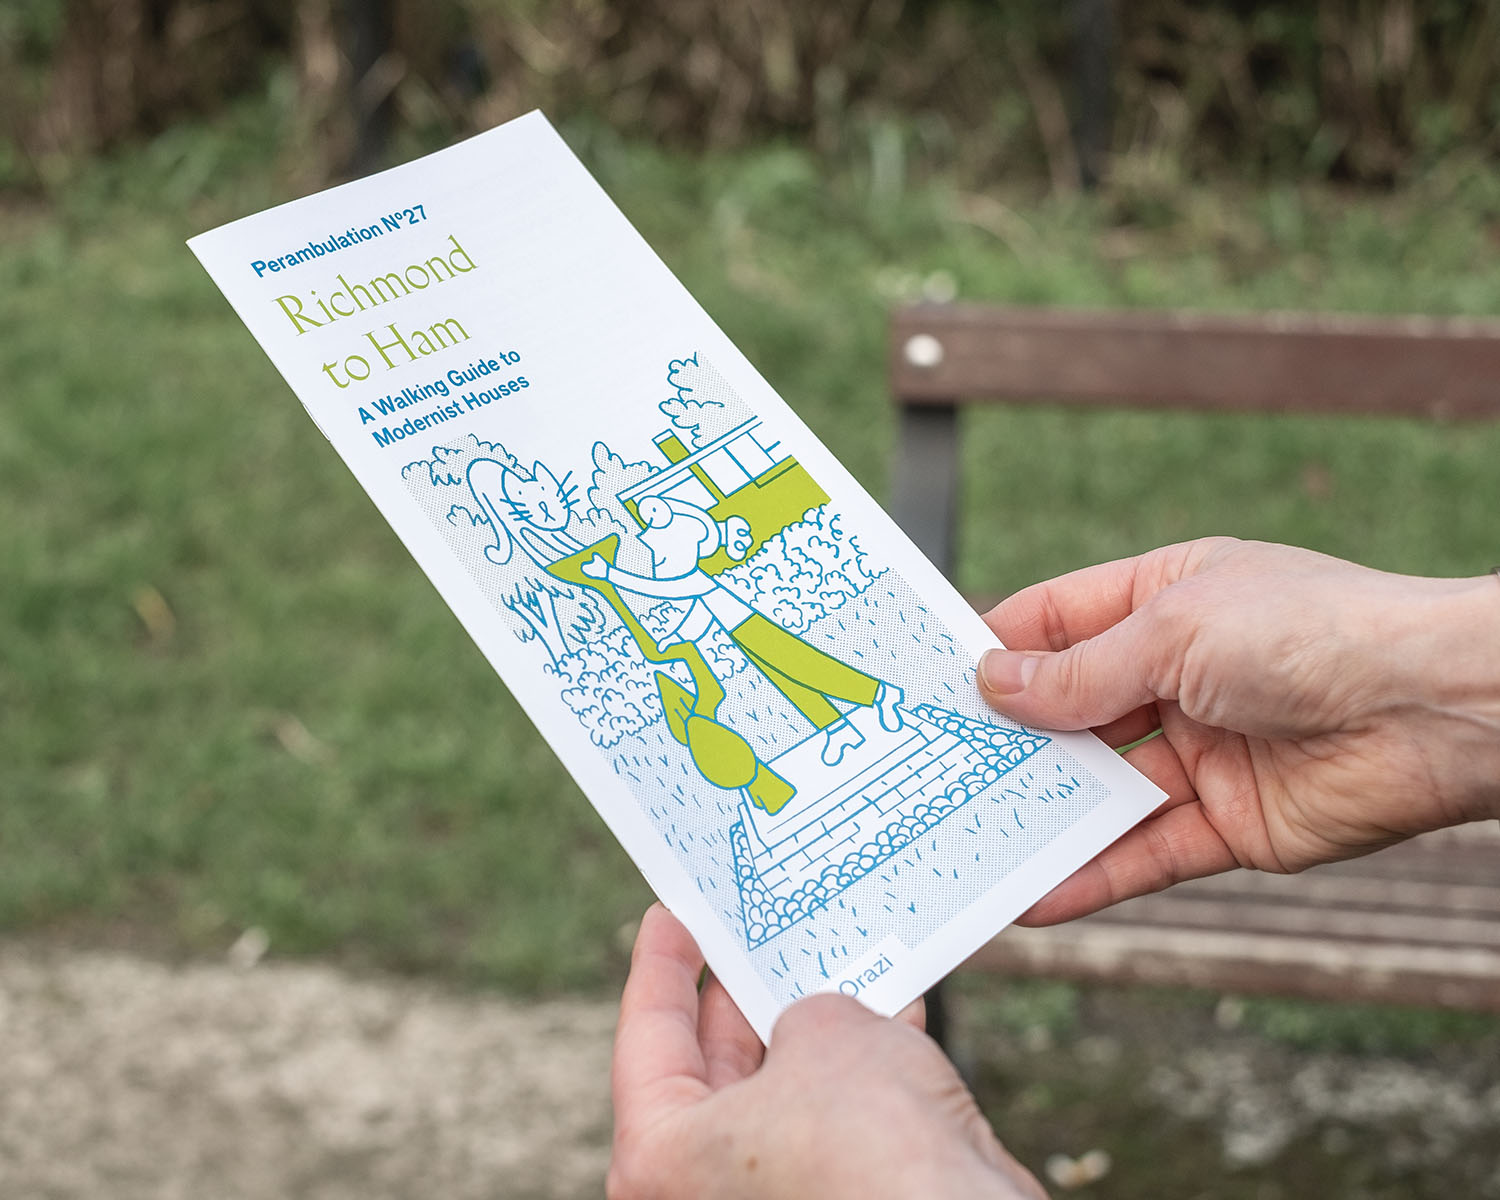 Perambulation Nº27
Richmond
to Ham
A Walking Guide to
Modernist Houses
Orazi